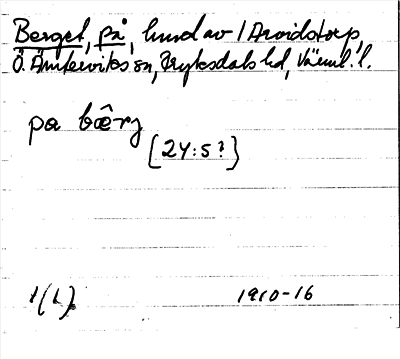 Berget, på, hmd av 1 Arvidstorp,
Ö. Ämterviks sn, Fryksdals hd, Värml. l.
pɑ bæ̂rj
[24:5?]
1(L).
1910-16